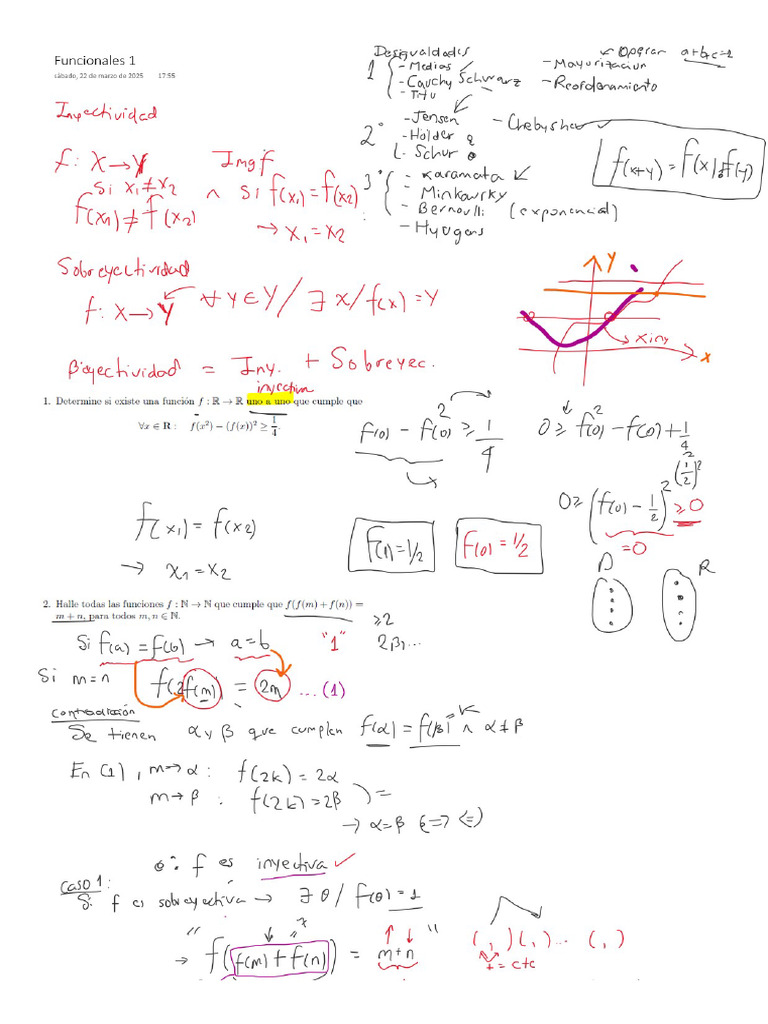 Funcionales 1
sábado, 22 de marzo de 2025 17:55
Desigualdades
1 { - Medias ✓
- Cauchy Schwarz
- Titu
← Operar a+b+c=2
- Mayorizacion
- Reordenamiento
2° - Jensen
- Holder
- Schur
- Chebyshev ✓
3° { - Karamata ✓
- Minkowsky
- Bernoulli (exponencial)
- Huygens
f(x+y) = f(x).f(y)
Inyectividad
f: X → Y Img f
Si x₁≠x₂ ∧ si f(x₁) = f(x₂)
f(x₁) ≠ f(x₂) → x₁ = x₂
Sobreyectividad
f: X → Y ∀ y ∈ Y / ∃ x / f(x) = Y
Biyectividad = Iny. + Sobreyec.
Y
x iny
x
inyectiva
1. Determine si existe una función f : ℝ → ℝ uno a uno que cumple que
∀x ∈ ℝ : f(x²) − (f(x))² ≥ 1/4.
f(0) - f(0)² ≥ 1/4
0 ≥ f(0)² - f(0) + 1/4
(1/2)²
0 ≥ (f(0) - 1/2)² ≥ 0
=0
f(x₁) = f(x₂)
→ x₁ = x₂
f(1) = 1/2
f(0) = 1/2
D R
2. Halle todas las funciones f : ℕ → ℕ que cumple que f(f(m) + f(n)) =
m + n, para todos m, n ∈ ℕ.
≥2
Si f(a) = f(b) → a = b "1" 2,3,...
Si m = n f(2f(m)) = 2m ...(1)
contradicción
Se tienen α y β que cumplen f(α) = f(β) = K ∧ α ≠ β
En (1), m → α : f(2k) = 2α
m → β : f(2k) = 2β ) =
→ α = β (⇒⇐)
∴ f es inyectiva ✓
caso 1:
Si f es sobreyectiva → ∃ θ / f(θ) = 1
→ "f(f(m) + f(n)) = m+n"
( , ) ( , ) ... ( , )
+ = cte